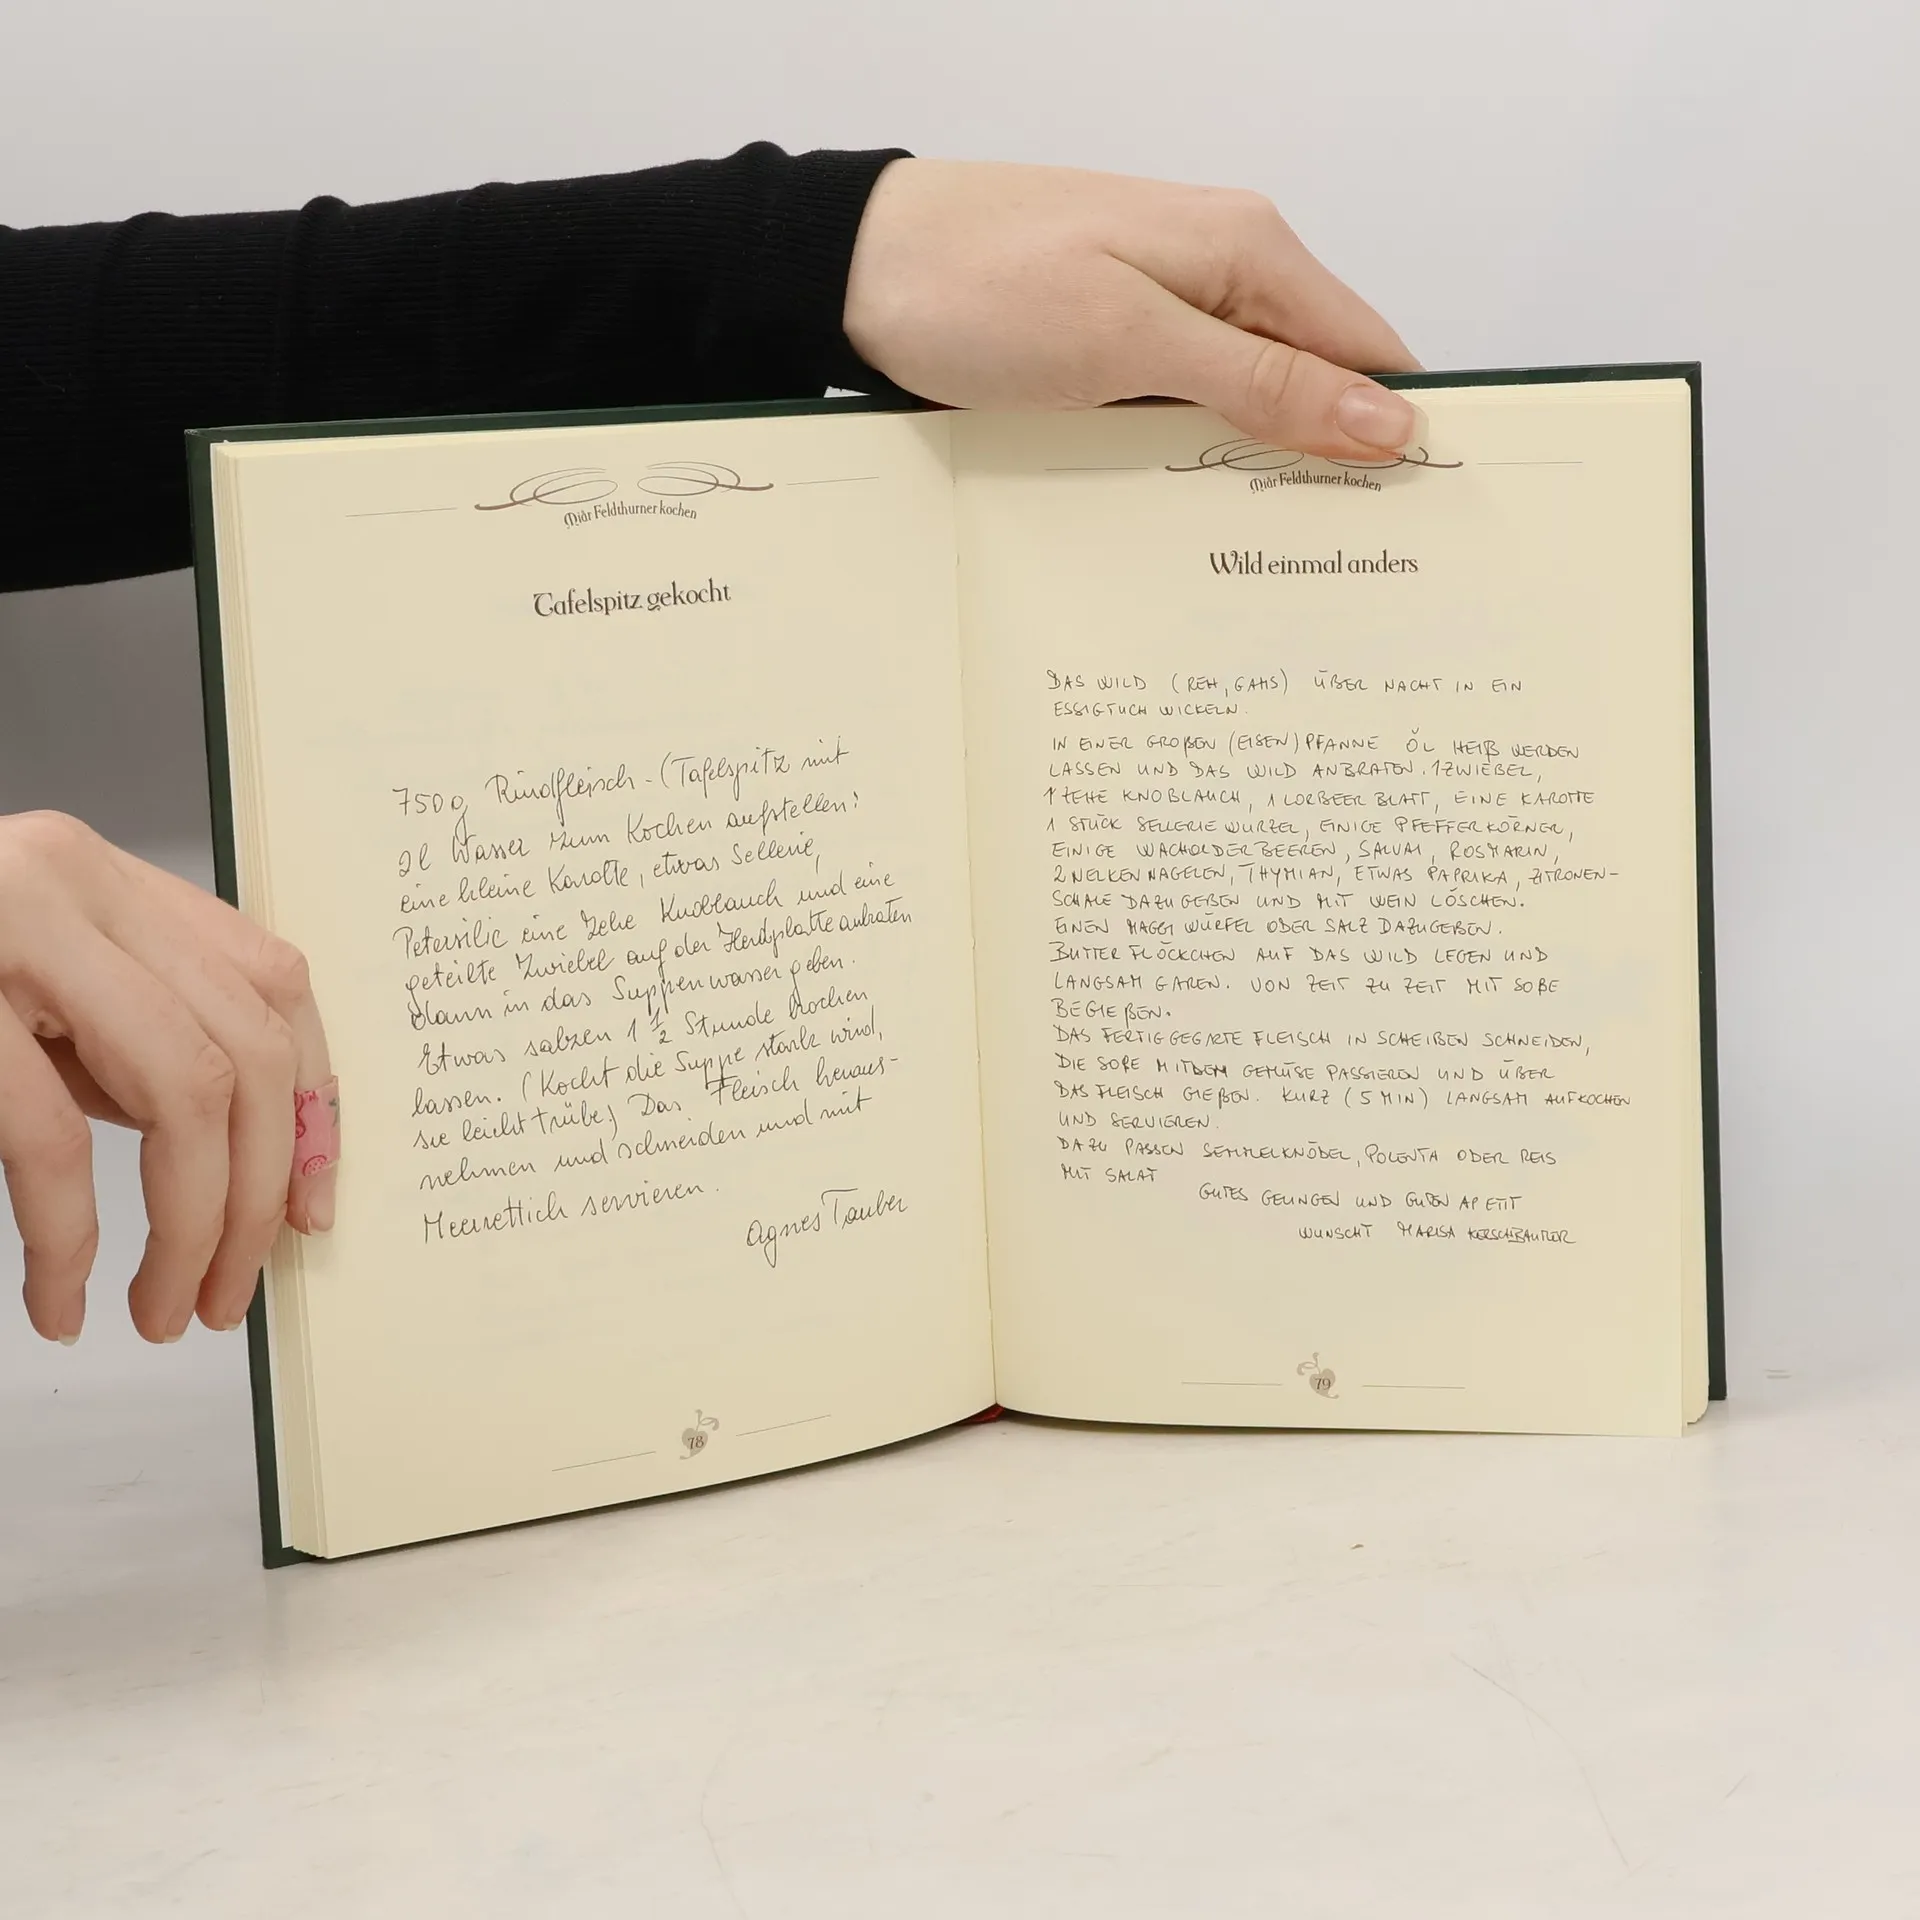 Miar Feldthurner kochen
Tafelspitz gekocht
750 g Rindfleisch - (Tafelspitz mit
2l Wasser zum Kochen aufstellen:
eine kleine Karotte, etwas Sellerie,
Petersilie eine Zehe Knoblauch und eine
geteilte Zwiebel auf der Herdplatte anbraten
dann in das Suppenwasser geben.
Etwas salzen 1 1/2 Stunde kochen
lassen. (Kocht die Suppe stark wird,
sie leicht trübe.) Das Fleisch heraus-
nehmen und schneiden und mit
Meerrettich servieren.
Agnes Tauber
78
Miar Feldthurner kochen
Wild einmal anders
DAS WILD (REH, GAMS) ÜBER NACHT IN EIN
ESSIGTUCH WICKELN.
IN EINER GROßEN (EISEN)PFANNE ÖL HEIß WERDEN
LASSEN UND DAS WILD ANBRATEN. 1 ZWIEBEL,
1 ZEHE KNOBLAUCH, 1 LORBEER BLATT, EINE KAROTTE
1 STÜCK SELLERIE WURZEL, EINIGE PFEFFERKÖRNER,
EINIGE WACHOLDERBEEREN, SALVAI, ROSMARIN,
2 NELKEN NAGELEN, THYMIAN, ETWAS PAPRIKA, ZITRONEN-
SCHALE DAZU GEBEN UND MIT WEIN LÖSCHEN.
EINEN MAGGI WÜRFEL ODER SALZ DAZUGEBEN.
BUTTER FLÖCKCHEN AUF DAS WILD LEGEN UND
LANGSAM GAREN. VON ZEIT ZU ZEIT MIT SOßE
BEGIEßEN.
DAS FERTIG GEGARTE FLEISCH IN SCHEIBEN SCHNEIDEN,
DIE SOßE MIT DEM GEMÜSE PASSIEREN UND ÜBER
DAS FLEISCH GIEßEN. KURZ (5 MIN) LANGSAM AUFKOCHEN
UND SERVIEREN.
DAZU PASSEN SEMMELKNÖDEL, POLENTA ODER REIS
MIT SALAT
GUTES GELINGEN UND GUTEN APETIT
WUNSCHT MARISA KERSCHBAUMER
79